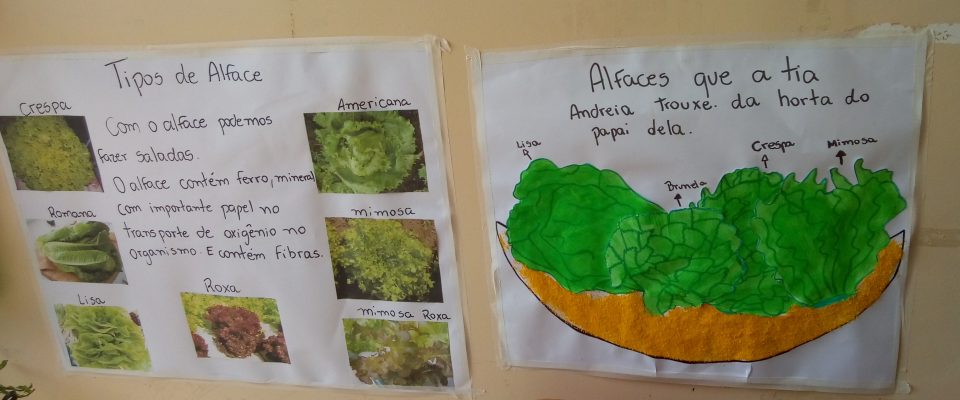 Tipos de Alface
Crespa
Americana
Com o alface podemos
fazer saladas.
O alface contém ferro, mineral
Romana
com importante papel no
mimosa
transporte de oxigênio no
organismo. E contém fibras.
Lisa
Roxa
mimosa Roxa
Alfaces que a tia
Andreia trouxe. da horta do
papai dela.
Lisa
Brunela
Crespa
Mimosa